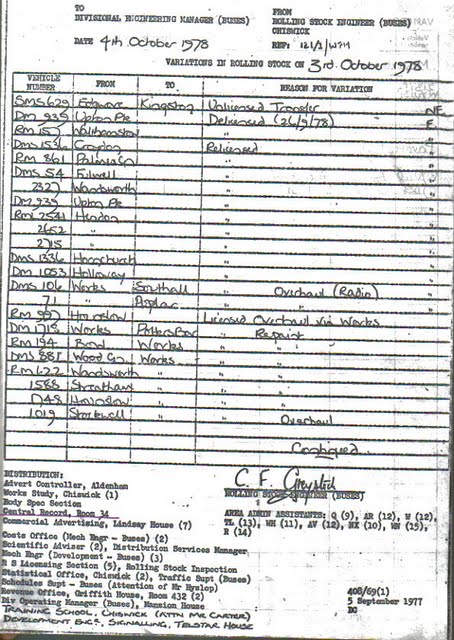 TO
DIVISIONAL ENGINEERING MANAGER (BUSES)
FROM
ROLLING STOCK ENGINEER (BUSES)
CHISWICK
DATE 4th October 1978
REF: 121/1/WJM
VARIATIONS IN ROLLING STOCK ON 3rd October 1978
VEHICLE NUMBER FROM TO REASON FOR VARIATION
SMS 629 Edgware Kingston Unlicensed Transfer NE
DM 935 Upton Pk Delicensed (26/9/78) E
RM 157 Walthamstow " "
DMS 1536 Croydon Relicensed "
RM 861 Palmers Gn " "
DMS 54 Fulwell " "
2327 Wandsworth " "
DM 935 Upton Pk " "
RML 2541 Hendon " "
2652 " " "
2715 " " "
DMS 1336 Hornchurch " "
DM 1053 Holloway " "
DMS 106 Works Southall " Overhaul (Radio) "
71 " Poplar " " "
RM 997 Hounslow Licensed Overhaul via Works
DM 1718 Works Potters Bar " Repaint "
RM 194 Bow Works " " "
DMS 881 Wood Gn Works " " "
RM 622 Wandsworth " " " "
1588 Streatham " " " "
1748 Hounslow " " " "
1019 Stockwell " " Overhaul
Continued
DISTRIBUTION:
Advert Controller, Aldenham
Works Study, Chiswick (1)
Body Spec Section
Central Record, Room 34
Commercial Advertising, Lindsey House (7)
Costs Office (Mech Engr - Buses) (2)
Scientific Adviser (2), Distribution Services Manager
Mech Engr (Development - Buses) (3)
R S Licensing Section (5), Rolling Stock Inspection
Statistical Office, Chiswick (2), Traffic Supt (Buses)
Schedules Supt - Buses (Attention of Mr Hyslop)
Revenue Office, Griffith House, Room 432 (2)
Div Operating Manager (Buses), Mansion House
TRAINING SCHOOL, CHISWICK (ATTN MR CARTER)
DEVELOPMENT ENGR, SIGNALLING, TELSTAR HOUSE
C. F.
ROLLING STOCK ENGINEER (BUSES)
AREA ADMIN ASSISTANTS: Q (9), AR (12), W (12),
TL (13), WH (11), AV (12), HX (10), WN (15),
R (14)
408/69(1)
5 September 1977